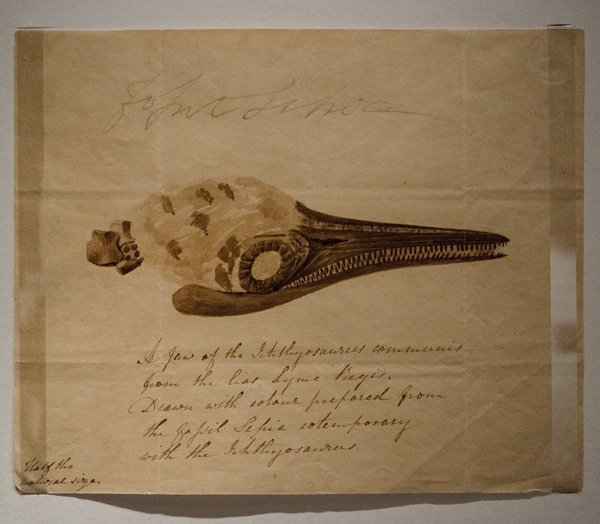 Fossil Sepia
A jaw of the Ichthyosaurus communis
from the lias, Lyme Regis.
Drawn with colour prepared from
the fossil Sepia cotemporary
with the Ichthyosaurus.
Half the
natural size.